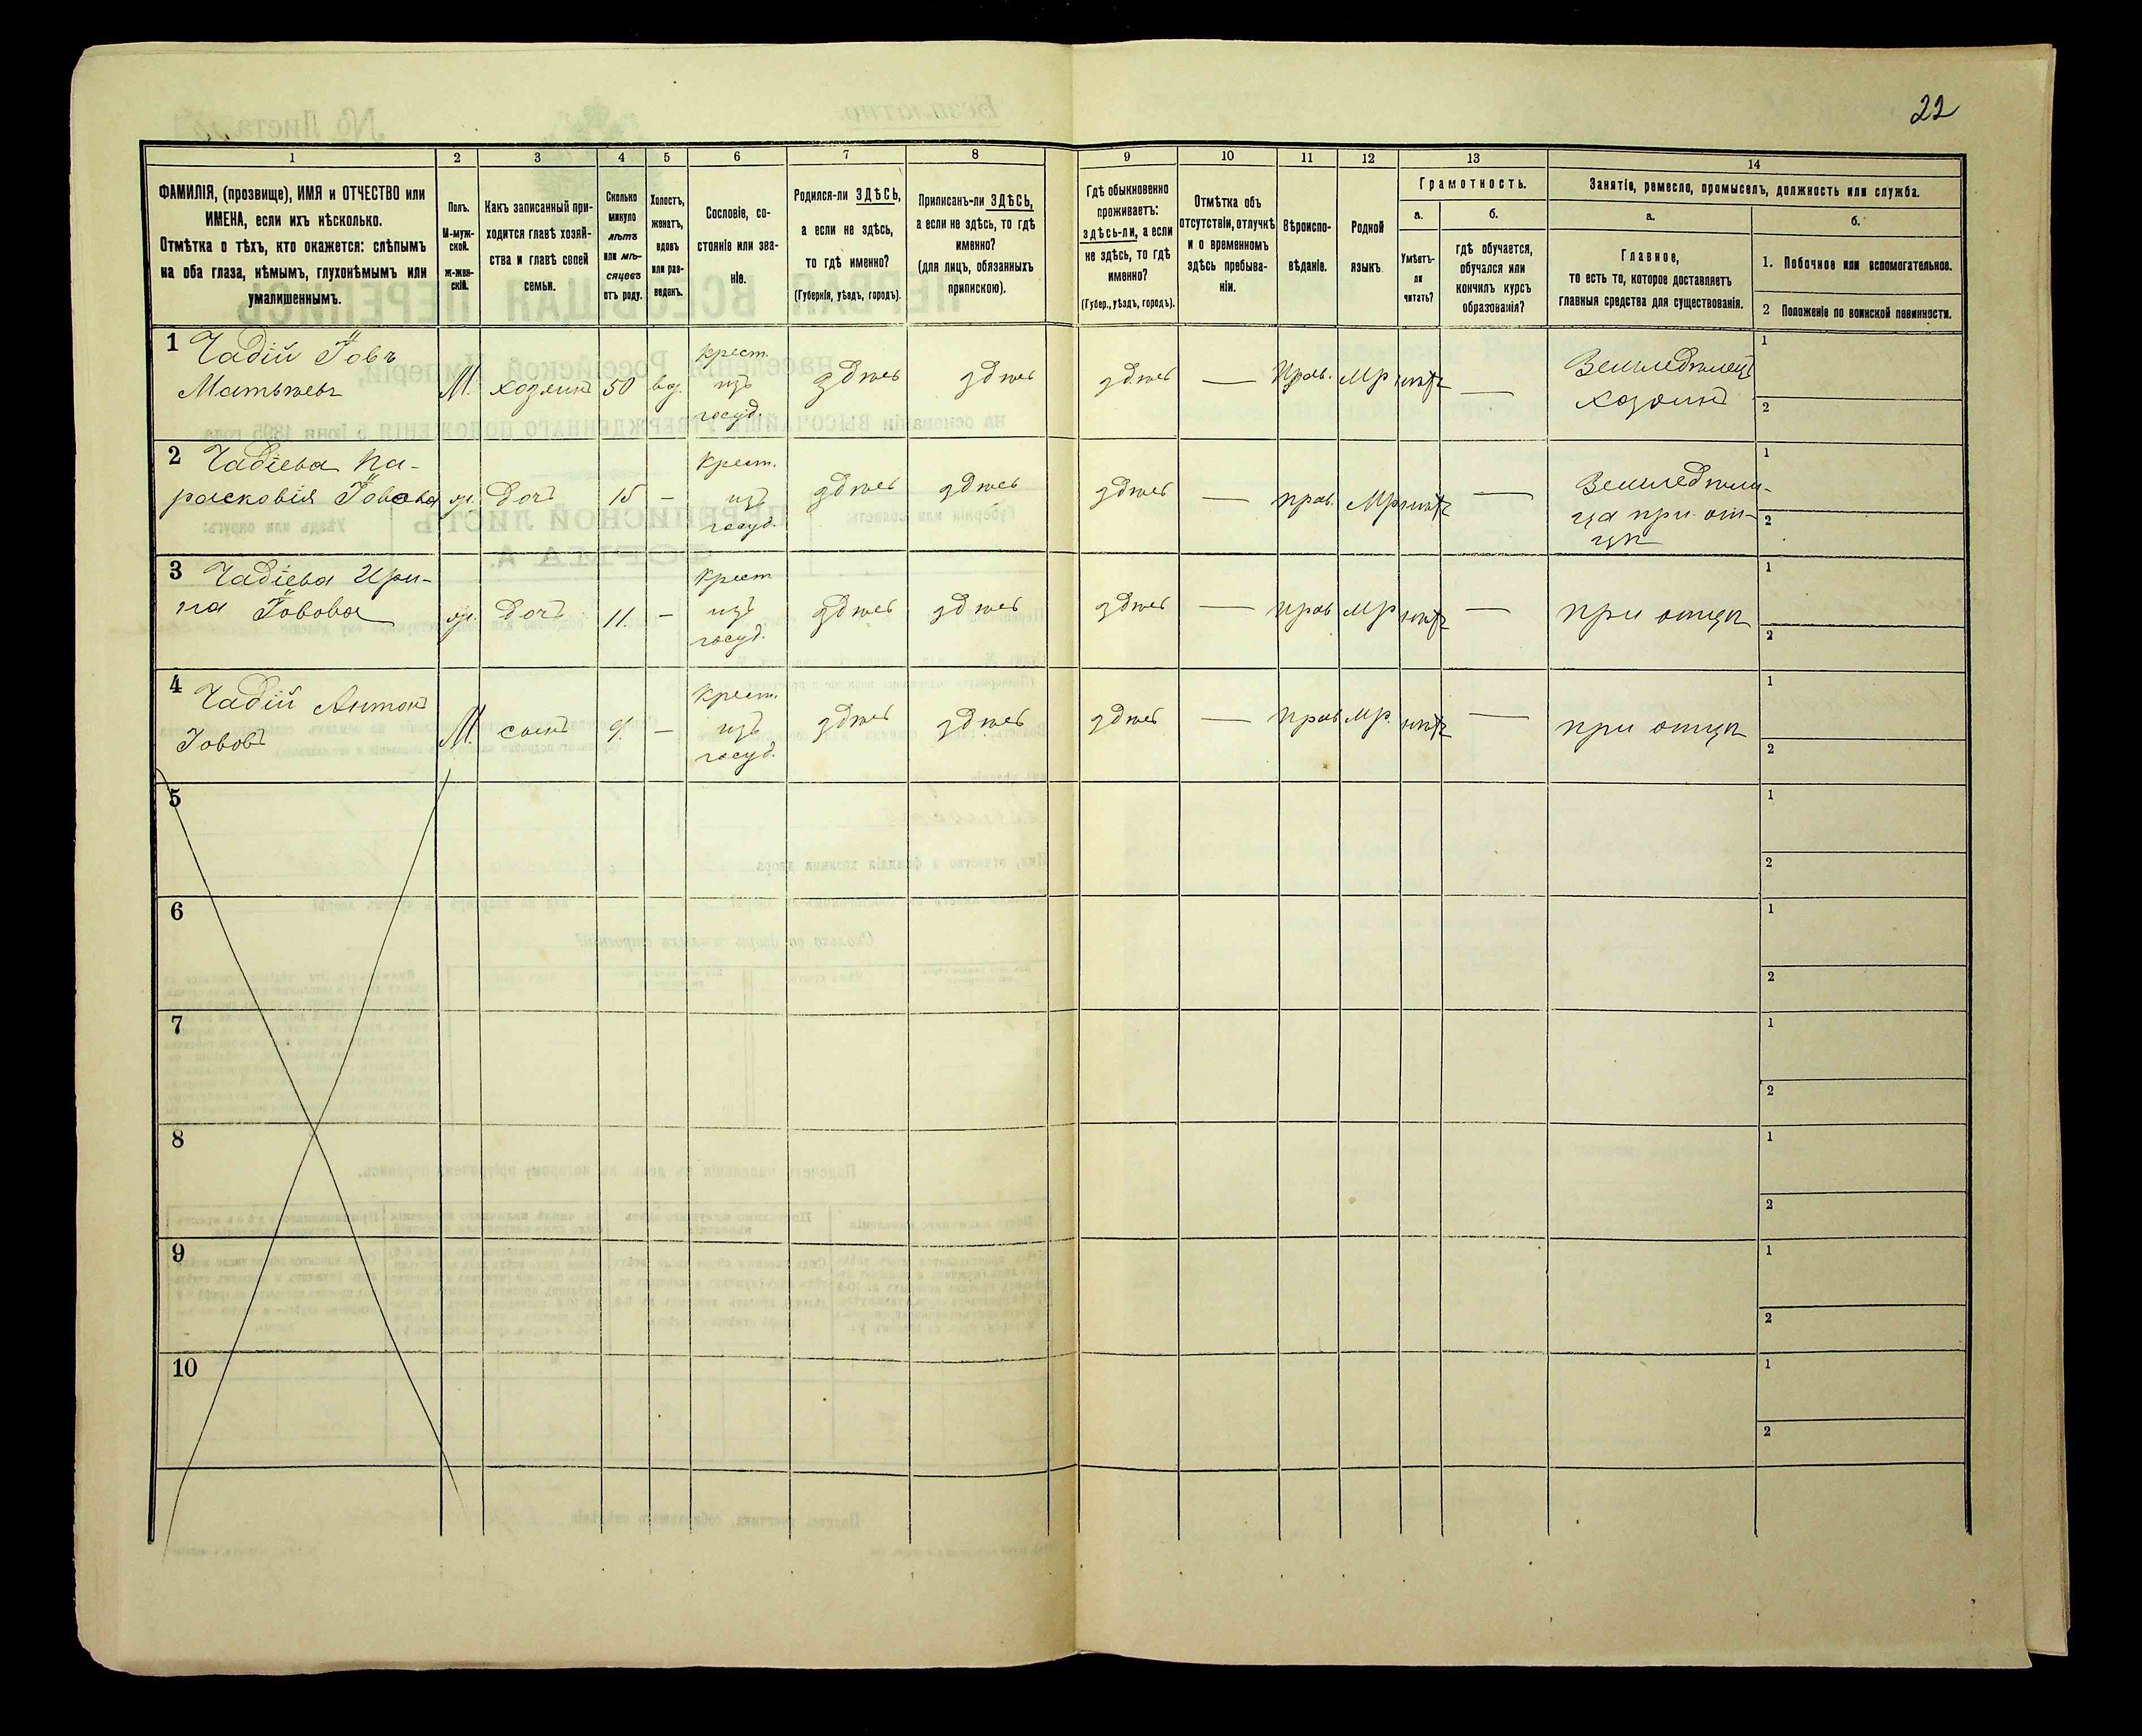 22
1
2
3
4
5
6
7
8
9
10
11
12
13
14
ФАМИЛІЯ, (прозвище), ИМЯ и ОТЧЕСТВО или
ИМЕНА, если ихъ нѣсколько.
Отмѣтка о тѣхъ, кто окажется: слѣпымъ
на оба глаза, нѣмымъ, глухонѣмымъ или
умалишеннымъ.
Полъ.
М-муж-
ской.
Ж-жен-
скій.
Какъ записанный при-
ходится главѣ хозяй-
ства и главѣ своей
семьи.
Сколько
минуло
лѣтъ
или мѣ-
сяцевъ
отъ роду.
Холостъ,
женатъ,
вдовъ
или раз-
веденъ.
Сословіе, со-
стояніе или зва-
ніе.
Родился-ли ЗДѢСЬ,
а если не здѣсь,
то гдѣ именно?
(Губернія, уѣздъ, городъ).
Приписанъ-ли ЗДѢСЬ,
а если не здѣсь, то гдѣ
именно?
(для лицъ, обязанныхъ
припискою).
Гдѣ обыкновенно
проживаетъ:
здѣсь-ли, а если
не здѣсь, то гдѣ
именно?
(Губер., уѣздъ, городъ).
Отмѣтка объ
отсутствіи, отлучкѣ
и о временномъ
здѣсь пребыва-
ніи.
Вѣроиспо-
вѣданіе.
Родной
языкъ.
Грамотность.
а.
Умѣетъ-
ли
читать?
б.
гдѣ обучается,
обучался или
кончилъ курсъ
образованія?
Занятіе, ремесло, промыселъ, должность или служба.
а.
Главное,
то есть то, которое доставляетъ
главныя средства для существованія.
б.
1. Побочное или вспомогательное.
2 Положеніе по воинской повинности.
1 Чадій Іовъ
Матвѣевъ
М. хозяинъ 50 вд.
крест.
изъ
госуд.
здѣсь здѣсь здѣсь — Прав. Мр нѣтъ —
Земледѣлецъ
хозяинъ
1
2
2 Чадіева Па-
расковія Іовова
ж. дочь 15 —
крест.
изъ
госуд.
здѣсь здѣсь здѣсь — прав. Мр нѣтъ —
Земледѣли-
ца при от-
цѣ
1
2
3 Чадіева Ири-
на Іовова
ж. дочь 11. —
крест.
изъ
госуд.
здѣсь здѣсь здѣсь — прав Мр нѣтъ —
при отцѣ
1
2
4 Чадій Антонъ
Іововъ
М. сынъ 9. —
крест.
изъ
госуд.
здѣсь здѣсь здѣсь — прав Мр. нѣтъ —
при отцѣ
1
2
5
1
2
6
1
2
7
1
2
8
1
2
9
1
2
10
1
2